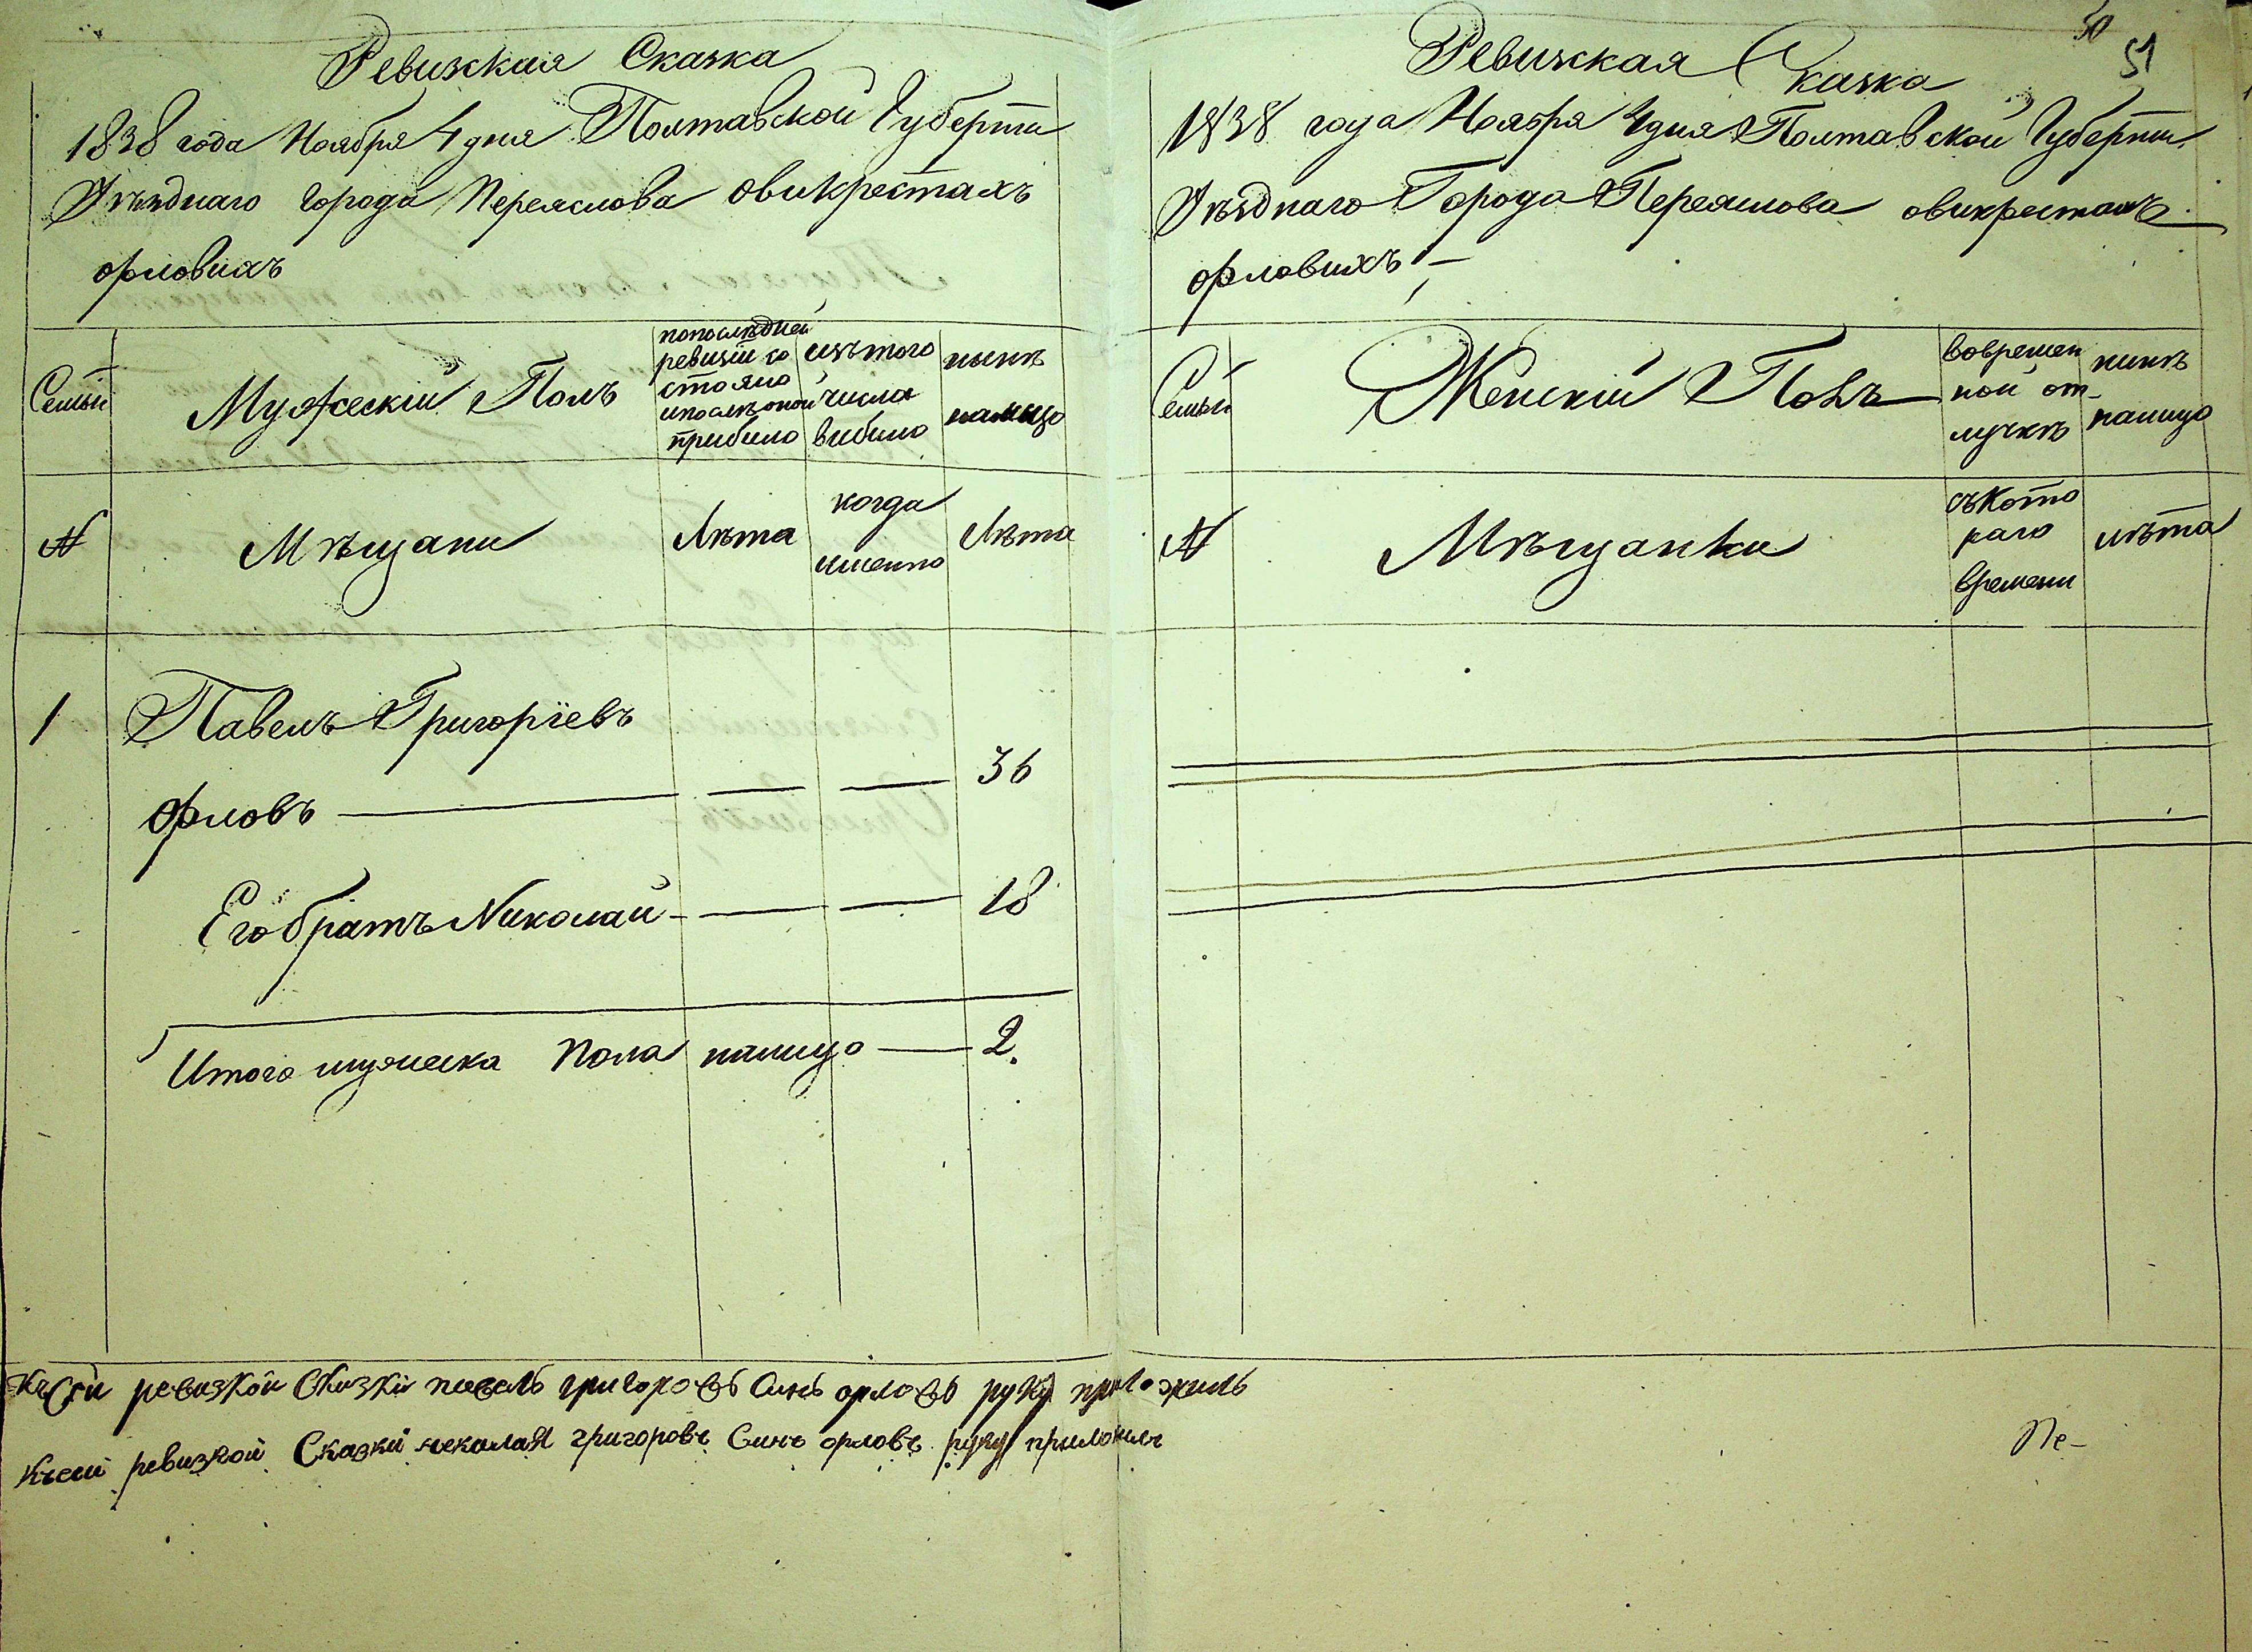 Ревизкая Сказка
1838 года Ноября 4 дня Полтавской Губерти
Уѣзднаго города Переяслова овикрестахъ
орловихъ
Семьи
Мужескій Полъ
попослѣдней
ревизіи со
стояло
ипослѣоной
прибило
изътого
числа
вибило
нынѣ
налицо
N
Мѣщани
Лѣта
когда
именно
Лѣта
1
Павелъ Григоріевъ
орловъ 36
Его братъ Николай 18
Итого мужеска пола налицо 2.
Ревизкая Сказка
50
51
1838 года Ноября 4 дня Полтавской Губерти
Уѣзднаго Города Переяслова овикрестахъ
орловихъ
Семьи
Женскій Полъ
вовремен
ной от-
лучкѣ
нинѣ
налицо
N
Мѣщанки
съкото
раго
времени
лѣта
Къ сей ревизкой Сказки павелъ григоровъ Синъ орловъ руку приложилъ
Къ сей ревизкой Сказки некалая григоровъ Синъ орловъ руку приложилъ
Пе-